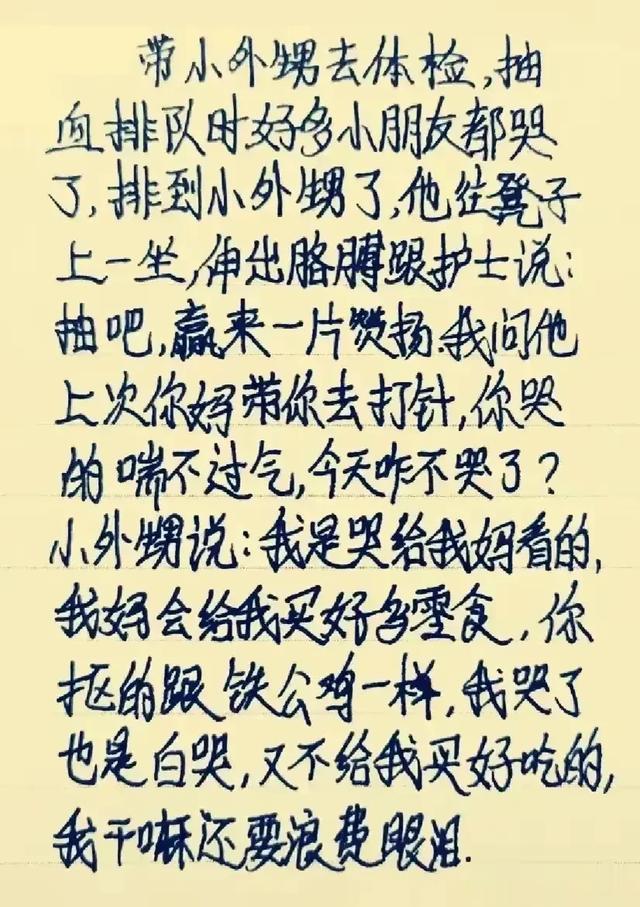 带小外甥去体检,抽
血排队时好多小朋友都哭
了,排到小外甥了,他往凳子
上一坐,伸出胳膊跟护士说:
抽吧,赢来一片赞扬.我问他
上次你妈带你去打针,你哭
的喘不过气,今天咋不哭了?
小外甥说:我是哭给我妈看的,
我妈会给我买好多零食,你
抠的跟铁公鸡一样,我哭了
也是白哭,又不给我买好吃的,
我干嘛还要浪费眼泪.